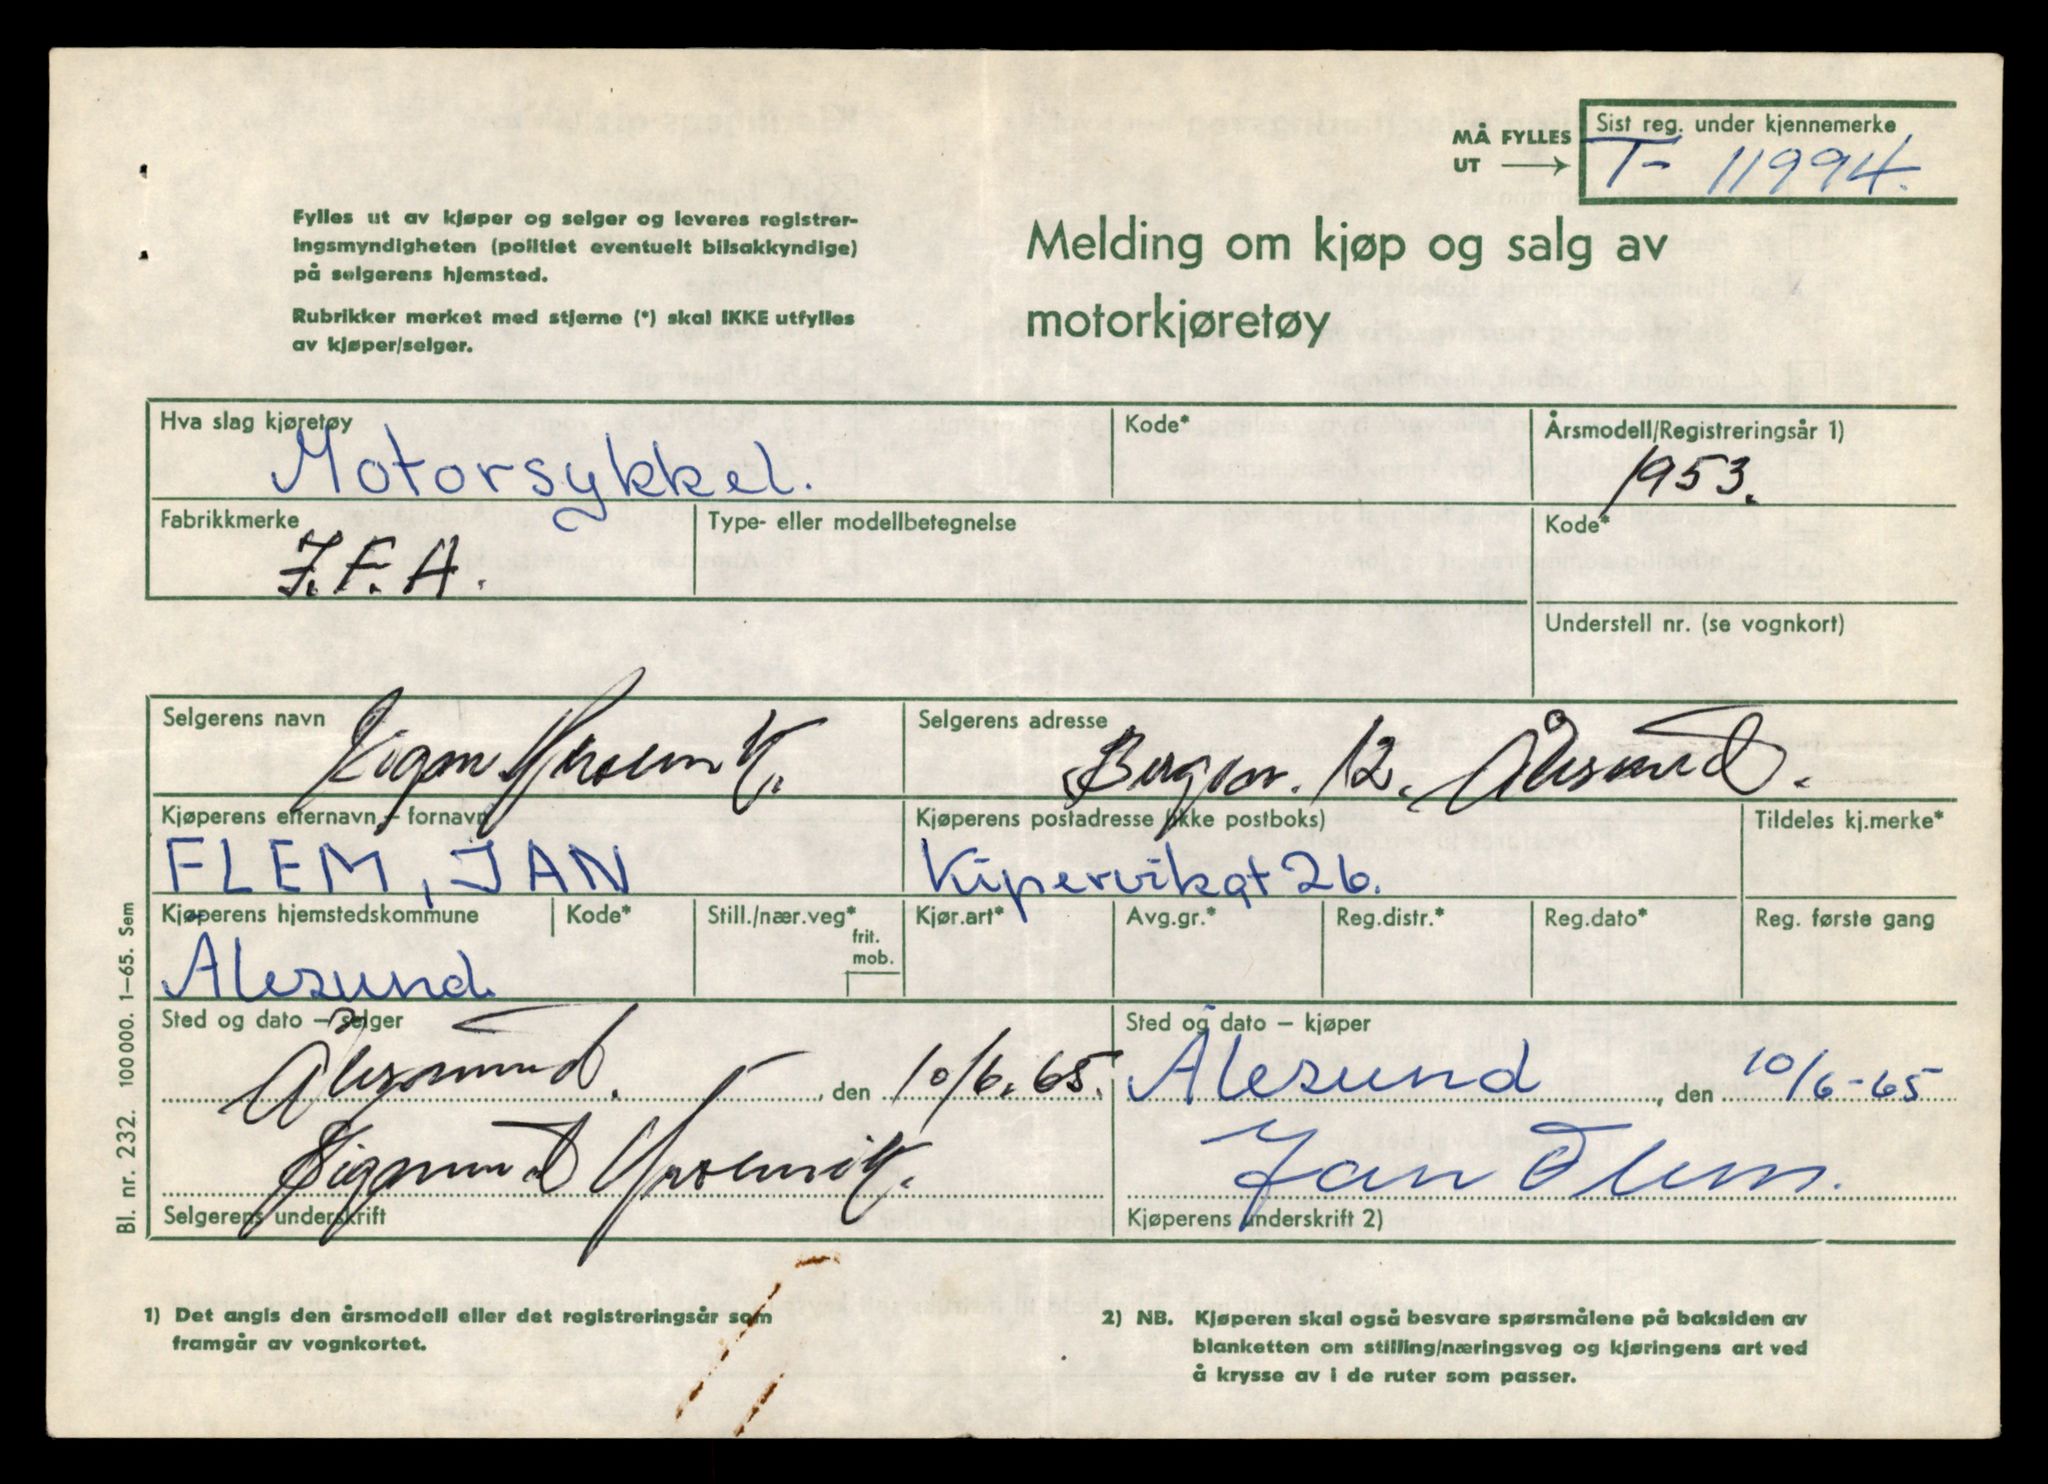 MÅ FYLLES UT →
Sist reg. under kjennemerke
T- 11994.
Fylles ut av kjøper og selger og leveres registrer-
ingsmyndigheten (politiet eventuelt bilsakkyndige)
på selgerens hjemsted.
Rubrikker merket med stjerne (*) skal IKKE utfylles
av kjøper/selger.
Melding om kjøp og salg av
motorkjøretøy
Hva slag kjøretøy
Motorsykkel.
Kode*
Årsmodell/Registreringsår 1)
1953.
Fabrikkmerke
I.F.A.
Type- eller modellbetegnelse
Kode*
Understell nr. (se vognkort)
Selgerens navn
Selgerens adresse
12. Ålesund.
Kjøperens efternavn – fornavn
FLEM, JAN
Kjøperens postadresse (ikke postboks)
Kipervikgt 26.
Tildeles kj.merke*
Kjøperens hjemstedskommune
Ålesund
Kode*
Still./nær.veg*
frit.
mob.
Kjør.art*
Avg.gr.*
Reg.distr.*
Reg.dato*
Reg. første gang
Sted og dato – selger
Ålesund. , den 10/6.65.
Sigmund
Selgerens underskrift
Sted og dato – kjøper
Ålesund , den 10/6-65
Jan Flem.
Kjøperens underskrift 2)
Bl. nr. 232. 100 000. 1–65. Sem
1) Det angis den årsmodell eller det registreringsår som
framgår av vognkortet.
2) NB. Kjøperen skal også besvare spørsmålene på baksiden av
blanketten om stilling/næringsveg og kjøringens art ved
å krysse av i de ruter som passer.